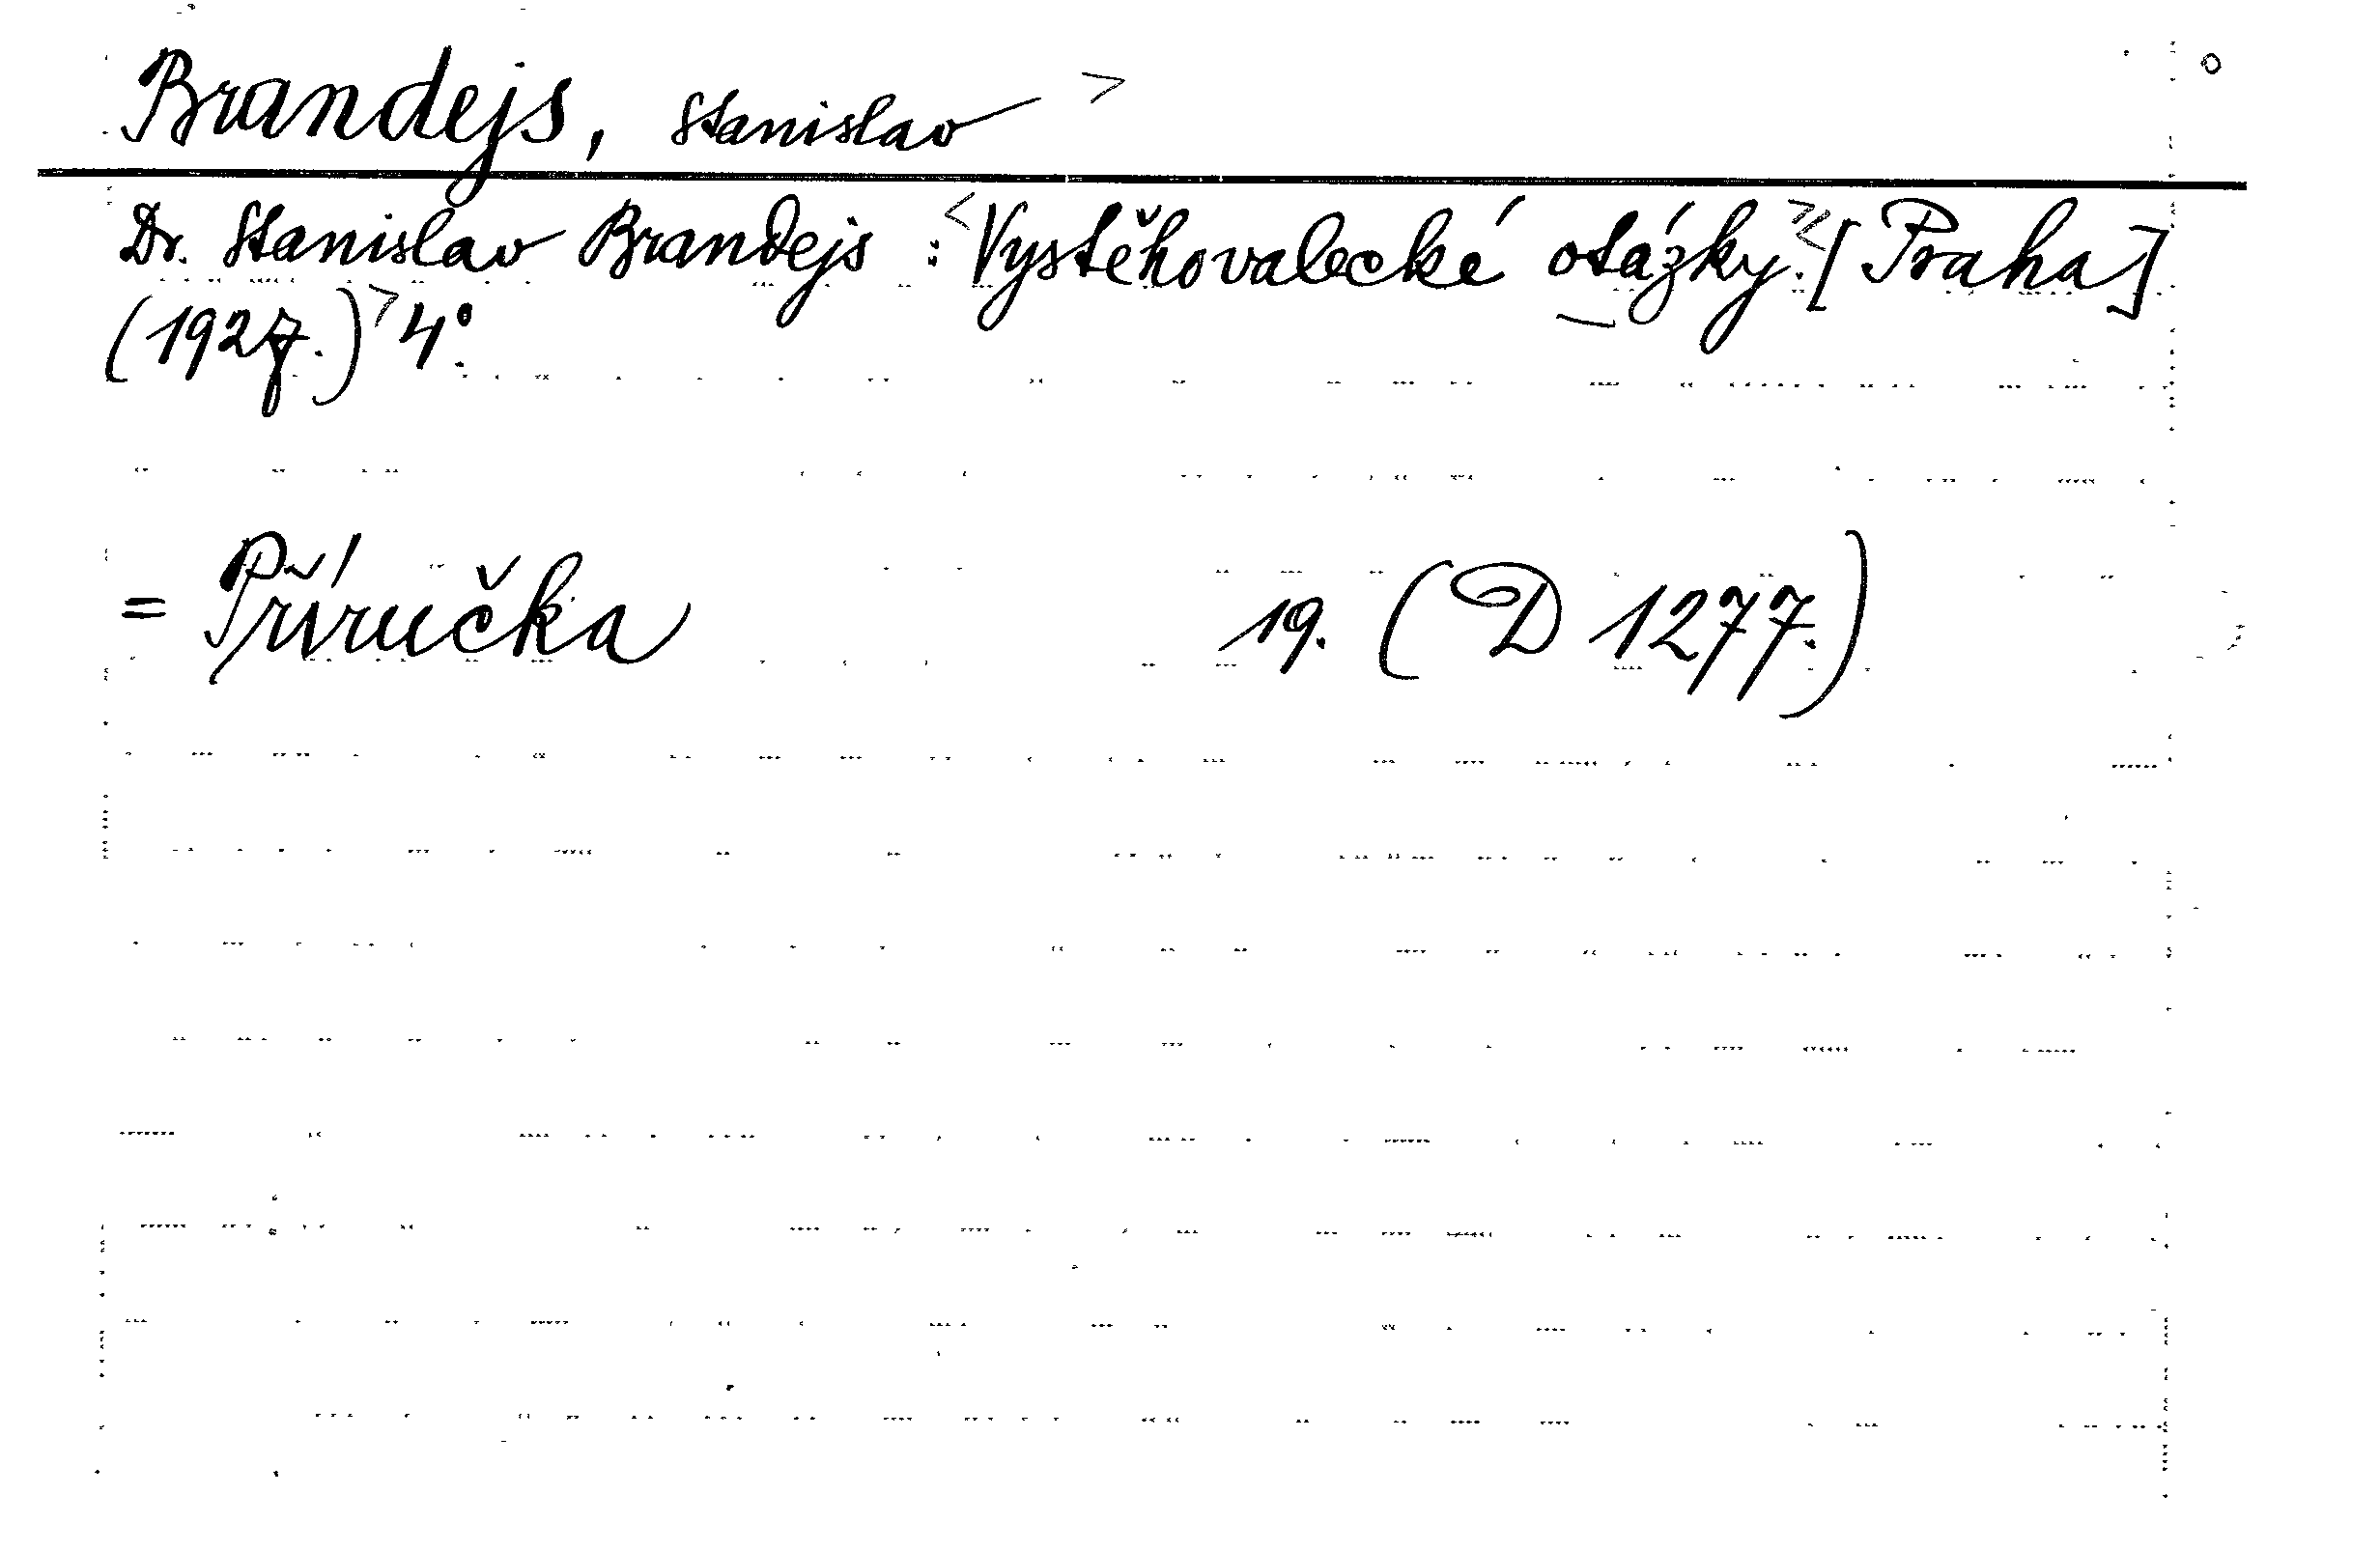 Brandejs, Stanislav >
Dr. Stanislav Brandejs : <Vystěhovalecké otázky.> <[Praha]
(1927.)> 4°.
= Příručka 19. (D 1277.)